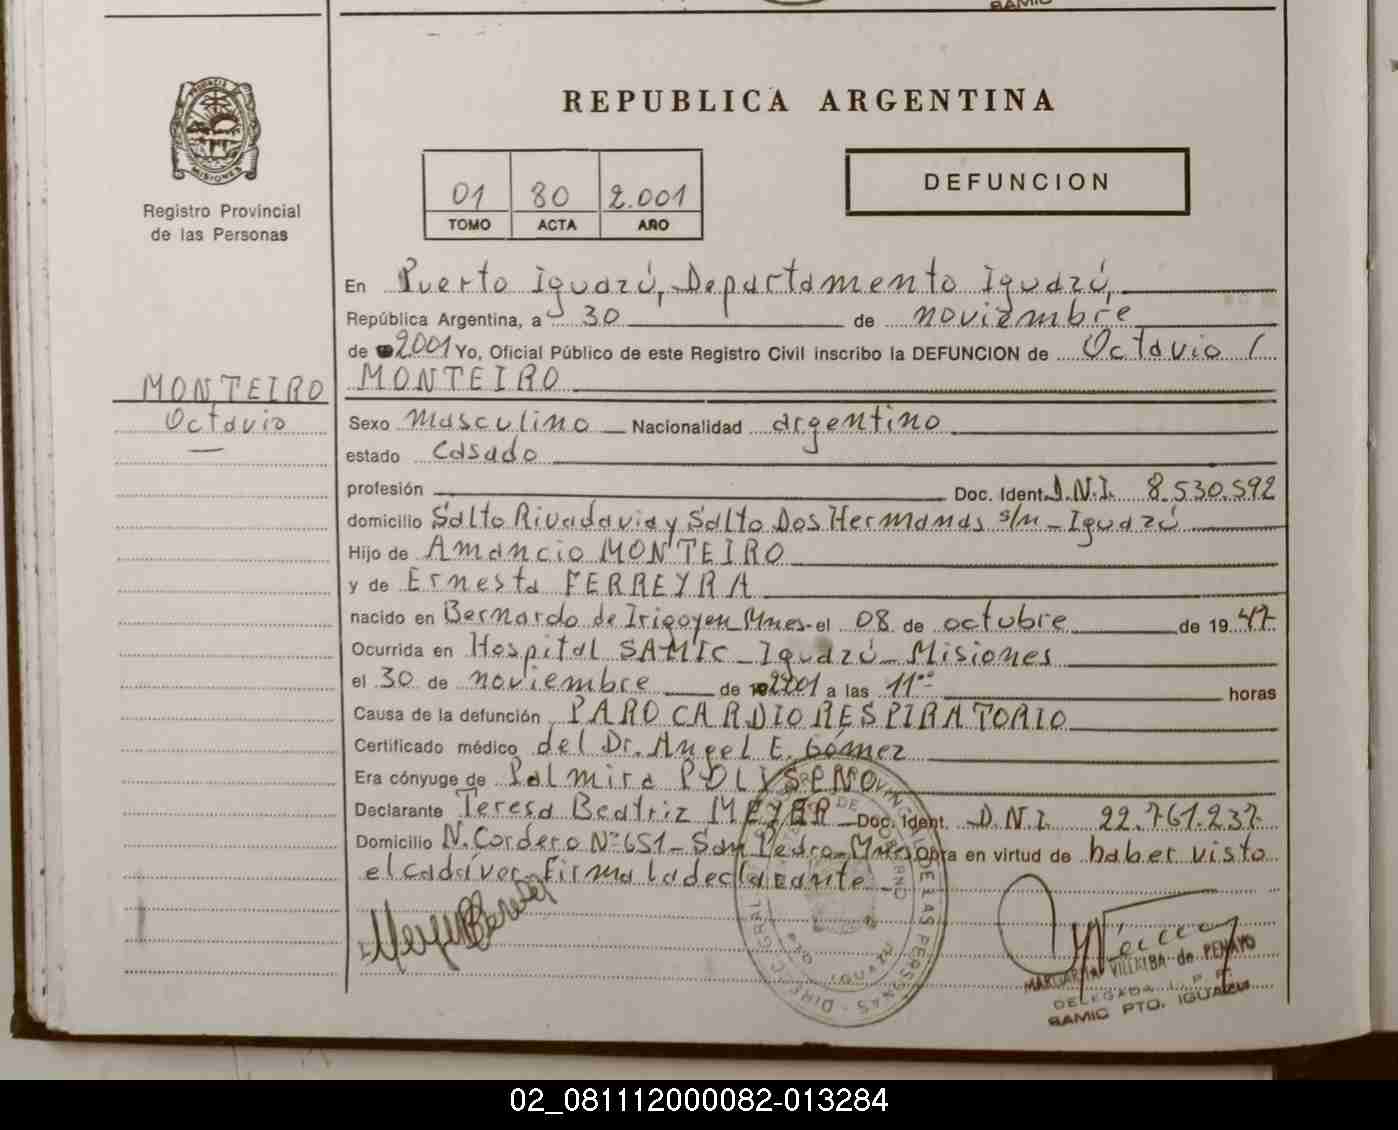 SAMIC
PROVINCIA DE
MISIONES
Registro Provincial
de las Personas
REPUBLICA ARGENTINA
01 80 2.001
TOMO ACTA AÑO
DEFUNCION
En Puerto Iguazú, Departamento Iguazú,
República Argentina, a 30 de noviembre
de 2001 Yo, Oficial Público de este Registro Civil inscribo la DEFUNCION de Octavio /
MONTEIRO
MONTEIRO
Octavio
Sexo masculino Nacionalidad argentino
estado casado
profesión Doc. Ident. D.N.I. 8.530.592
domicilio Salto Rivadavia y Salto Dos Hermanas s/n - Iguazú
Hijo de Amancio MONTEIRO
y de Ernesta FERREYRA
nacido en Bernardo de Irigoyen Mnes- el 08 de octubre de 19 47
Ocurrida en Hospital SAMIC - Iguazú - Misiones
el 30 de noviembre de 2001 a las 11°° horas
Causa de la defunción PARO CARDIORESPIRATORIO
Certificado médico del Dr. Angel E. Gómez
Era cónyuge de Palmira POLISENO
Declarante Teresa Beatriz MEYER Doc. Ident. D.N.I. 22.761.237
Domicilio N. Cordero Nº 651 - San Pedro - Mnes Obra en virtud de haber visto
el cadáver. Firma la declarante -
IGUAZU
MARGARITA VILLALBA de PENAYO
DELEGADA
SAMIC PTO. IGUAZU
02_081112000082-013284